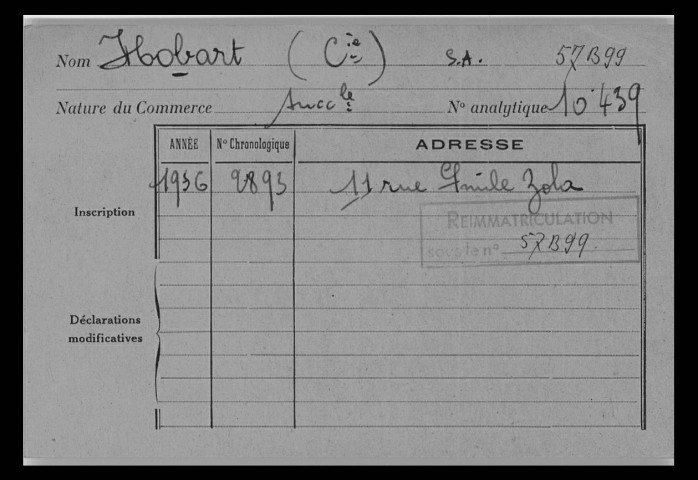 Nom Hobart (Cie) S.A. 57B99
Nature du Commerce Succle N° analytique 10.439
ANNÉE N° Chronologique ADRESSE
Inscription 1936 2893 11 rue Emile Zola
REIMMATRICULATION
sous le n° 57B99.
Déclarations
modificatives